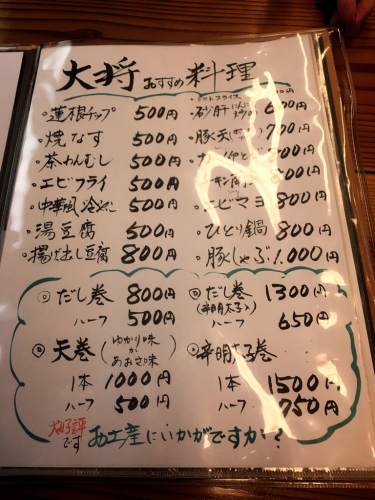 大将 おすすめ 料理
・蓮根チップ 500円
・焼なす 500円
・茶わんむし 500円
・エビフライ 500円
・中華風冷やっこ 500円
・湯豆腐 500円
・揚げ出し豆腐 800円
トマトスライス
・砂肝 にんにく 600円
・豚天 700円
・エビマヨ 800円
・ひとり鍋 800円
・豚しゃぶ 1.000円
◎だし巻 800円
ハーフ 500円
◎だし巻 1300円
(辛明太子入)
ハーフ 650円
◎天巻 (ゆかり味 か あおさ味)
1本 1000円
ハーフ 500円
◎辛明太子巻
1本 1500円
ハーフ 750円
大好評です
お土産にいかがですか?